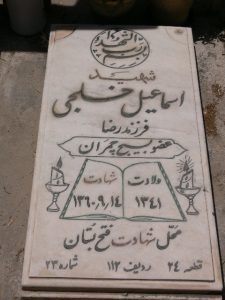 بسم رب الشهداء
شهید
اسماعیل خلجی
فرزند رضا
عضو بسیج چمران
ولادت شهادت
۱۳۴۱ ۱۳۶۰،۹،۱۴
محل شهادت فتح بستان
قطعه ۲۴ ردیف ۱۱۲ شماره ۲۳